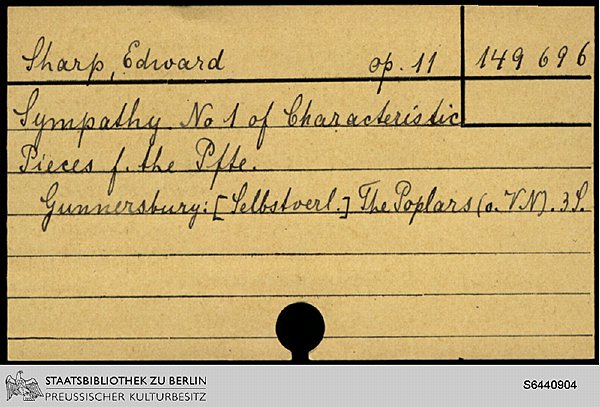 Sharp, Edward op. 11 149 696
Sympathy No 1 of Characteristic
Pieces f. the Pfte.
Gunnersbury: [Selbstverl.] The Poplars (o. VN). 3 S.
STAATSBIBLIOTHEK ZU BERLIN
PREUSSISCHER KULTURBESITZ
S6440904